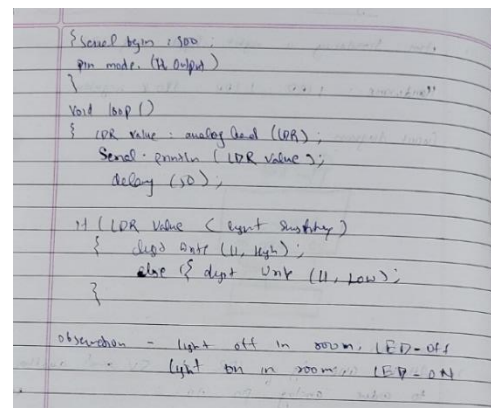 { Serial begin : 900 ;
pin mode. (11 Output)
}
Void loop ()
{ LDR value : analog Read (LDR) ;
Serial . println ( LDR value ) ;
delay (50) ;
If ( LDR Value < light )
{ digit write (11, High) ;
else { digit write (11, Low) ;
}
Observation - light off in room, LED-Off
light on in room, LED-ON